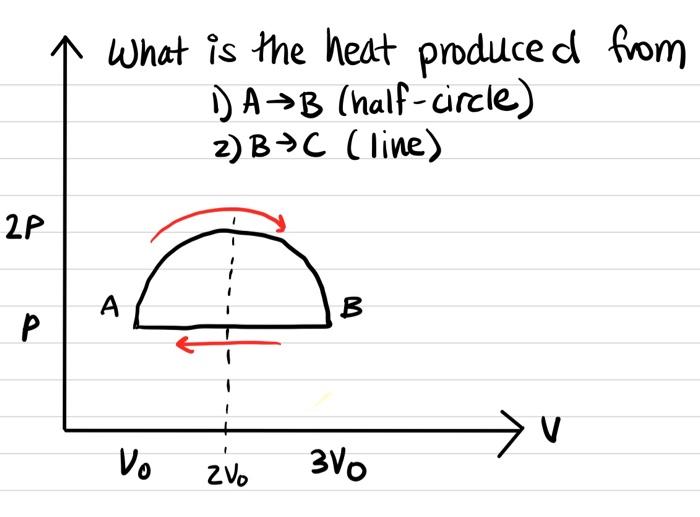 What is the heat produced from
1) A→B (half-circle)
2) B→C (line)
2P
A
B
P
V
V₀
2V₀
3V₀